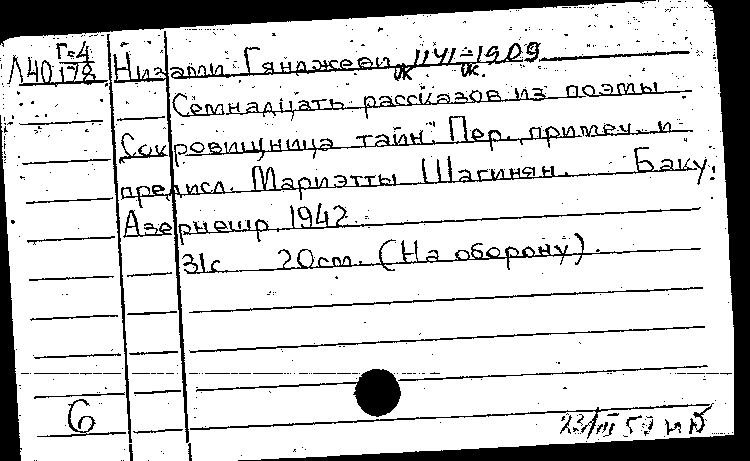 Г-4
Л40 178 Низами Гянджеви, 1141-1209
ок ок.
Семнадцать рассказов из поэмы
Сокровищница тайн". Пер., примеч. и
предисл. Мариэтты Шагинян. Баку,
Азернешр, 1942.
31с 20cm. (На обороту).
6
23/III 52